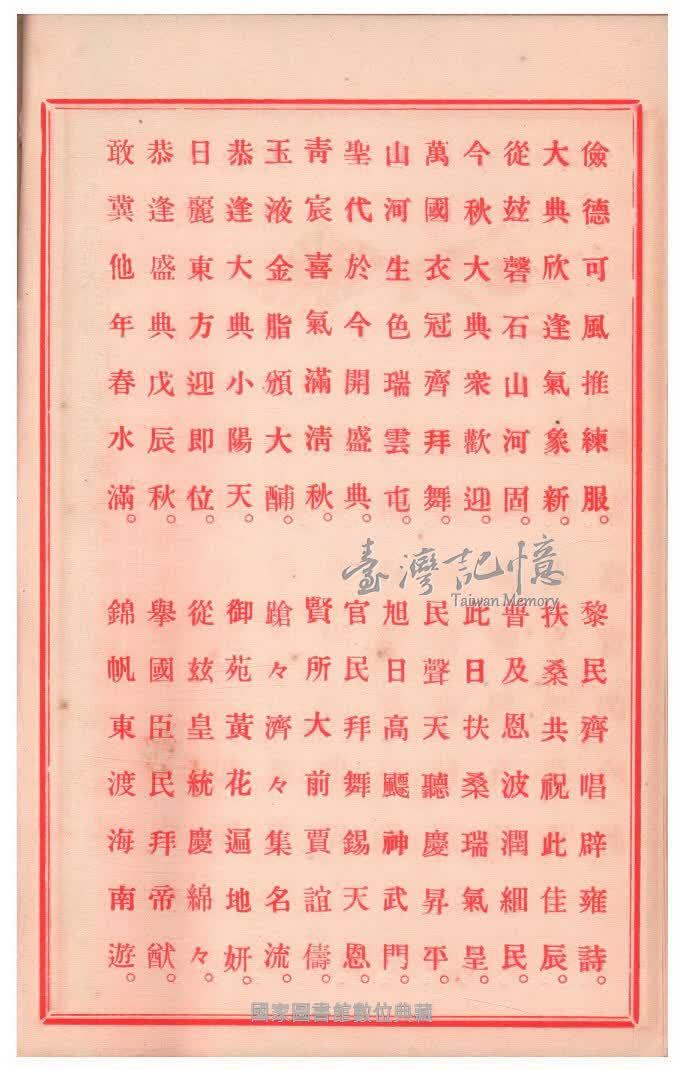 儉德可風推練服。黎民齊唱辟雍詩。
大典欣逢氣象新。扶桑共祝此佳辰。
從玆磬石山河固。普及恩波潤細民。
今秋大典衆歡迎。此日扶桑瑞氣呈。
萬國衣冠齊拜舞。民聲天聽慶昇平。
山河生色瑞雲屯。旭日高颺神武門。
聖代於今開盛典。官民拜舞錫天恩。
靑宸喜氣滿淸秋。賢所大前賈誼儔。
玉液金脂頒大酺。蹌々濟々集名流。
恭逢大典小陽天。御苑黃花遍地妍。
日麗東方迎即位。從玆皇統慶綿々。
恭逢盛典戊辰秋。擧國臣民拜帝猷。
敢冀他年春水滿。錦帆東渡海南遊。
臺灣記憶
Taiwan Memory
國家圖書館數位典藏